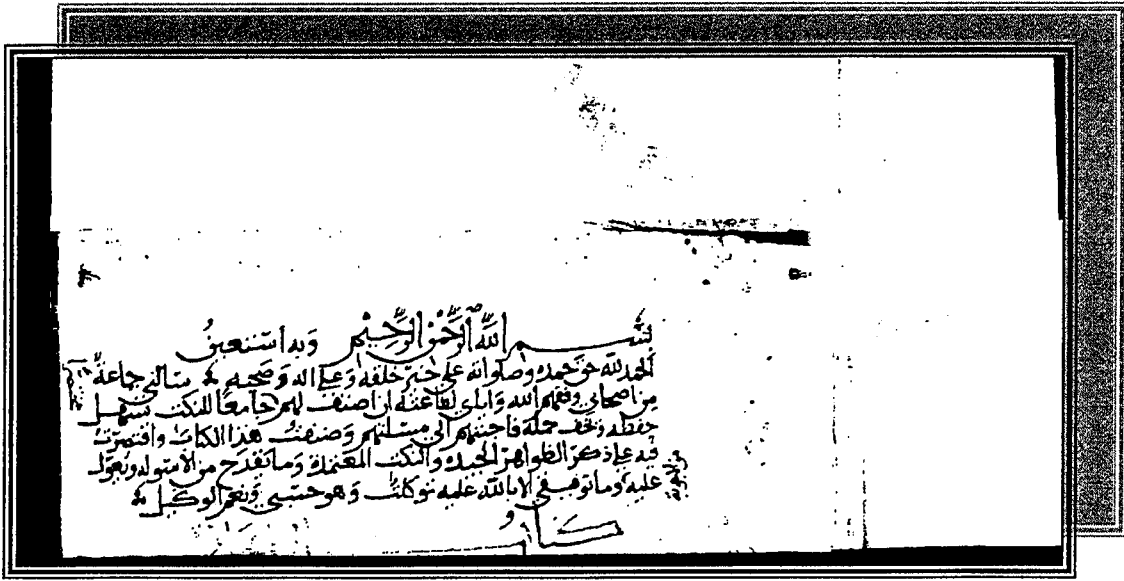 بسم الله الرحمن الرحيم وبه أستعين
الحمد لله حق حمده وصلواته على خير خلفه وعلى اله وصحبه سالني جماعة
من اصحابي وفقهم الله واياي لطاعته ان اصنف لهم جامعا للنكت يسهل
حفظه ويخف حمله فاجبتهم الى مسئلتهم وصنفت هذا الكتاب واقتصرت
فيه على ذكر الظواهر الجيدة والنكت المعتمدة وما يقدح من الاسوله ويعول
عليه وما توفيقي الا بالله عليه توكلت وهو حسبي ونعم الوكيل
كتاب